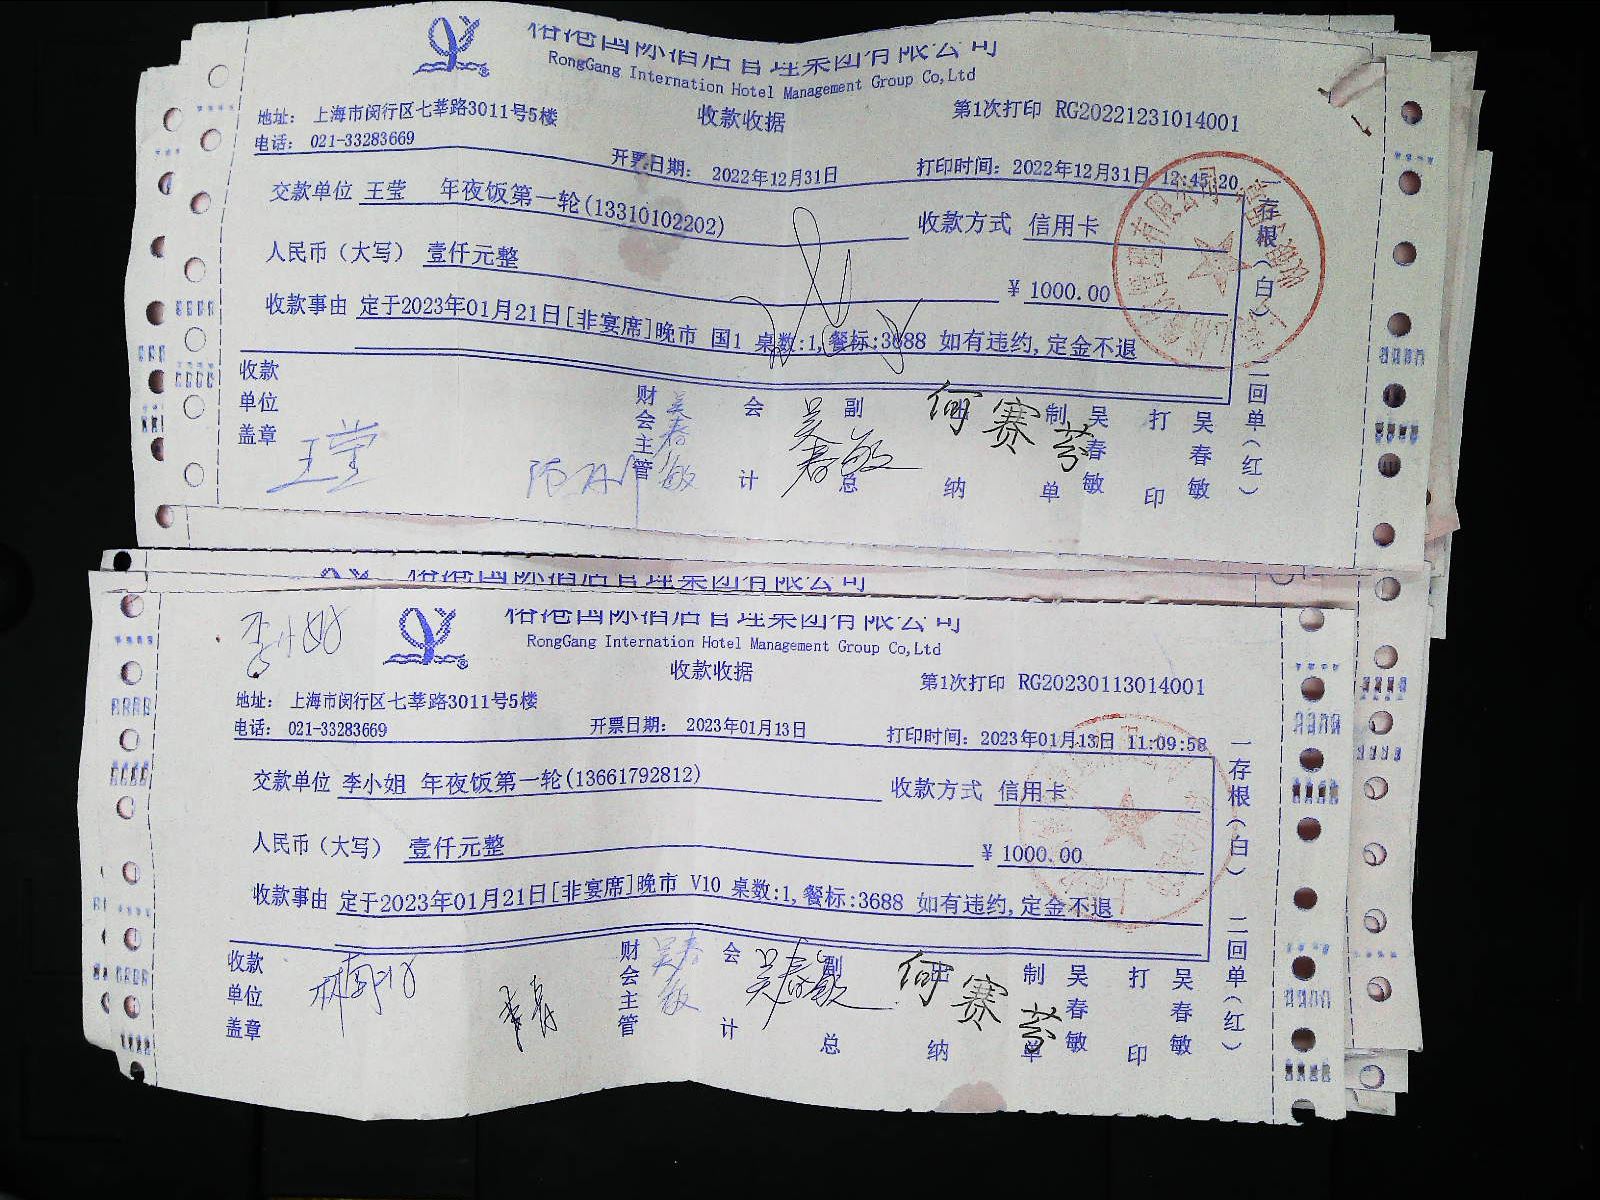 裕港国际酒店管理集团有限公司
RongGang Internation Hotel Management Group Co,Ltd
地址： 上海市闵行区七莘路3011号5楼
收款收据
第1次打印 RG20221231014001
电话： 021-33283669
开票日期： 2022年12月31日
打印时间：2022年12月31日 12:45:20
交款单位 王莹 年夜饭第一轮(13310102202)
收款方式 信用卡
人民币（大写） 壹仟元整
¥ 1000.00
收款事由 定于2023年01月21日[非宴席]晚市 国1 桌数:1,餐标:3688 如有违约,定金不退
一存根（白） 二回单（红）
收款单位盖章
王莹
财会主管 吴春敏
会计
吴春敏
副总
出纳
何赛芬
制单 吴春敏
打印 吴春敏
裕港国际酒店管理集团有限公司
裕港国际酒店管理集团有限公司
李小姐
RongGang Internation Hotel Management Group Co,Ltd
收款收据
第1次打印 RG20230113014001
地址： 上海市闵行区七莘路3011号5楼
电话： 021-33283669
开票日期： 2023年01月13日
打印时间：2023年01月13日 11:09:58
交款单位 李小姐 年夜饭第一轮(13661792812)
收款方式 信用卡
人民币（大写） 壹仟元整
¥ 1000.00
收款事由 定于2023年01月21日[非宴席]晚市 V10 桌数:1,餐标:3688 如有违约,定金不退
一存根（白） 二回单（红）
收款单位盖章
财会主管 吴春敏
会计
吴春敏
副总
出纳
何赛芬
制单 吴春敏
打印 吴春敏